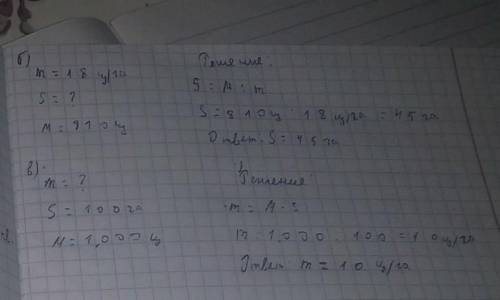 б)
m = 18 ц/га
S = ?
M = 810 ц
Решение:
S = M : m
S = 810 ц : 18 ц/га = 45 га
Ответ: S = 45 га
в)
m = ?
S = 100 га
M = 1000 ц
Решение:
m = M :
m = 1000 : 100 = 10 ц/га
Ответ m = 10 ц/га